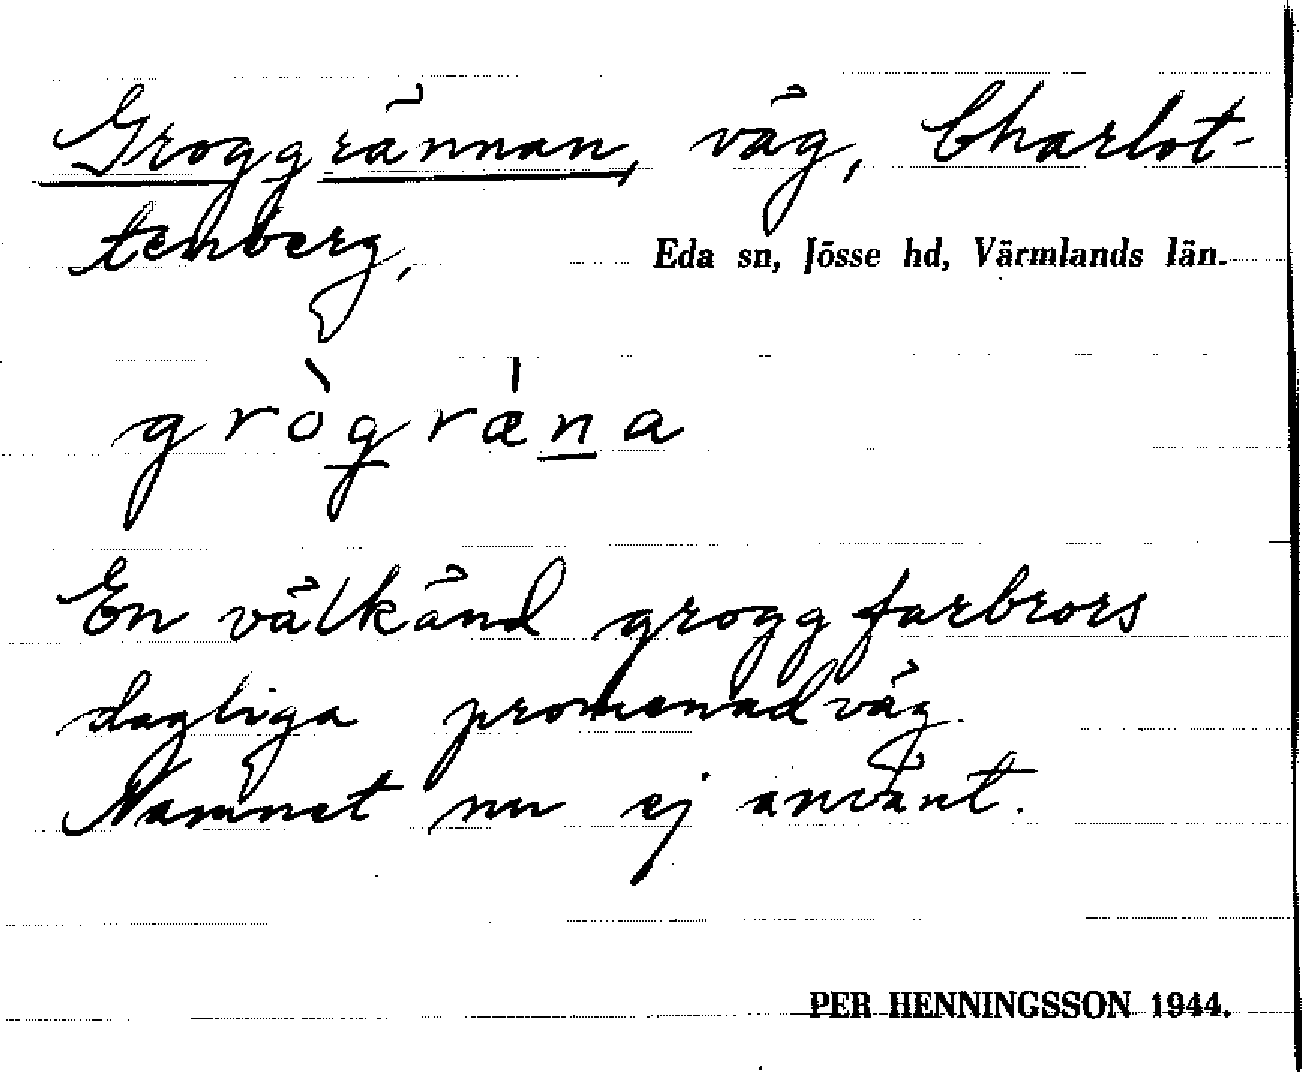 Groggrännan, väg, Charlot-
tenberg,
Eda sn, Jösse hd, Värmlands län.
grògræ̍na
En välkänd groggfarbrors
dagliga promenadväg.
Namnet nu ej använt.
PER HENNINGSSON 1944.